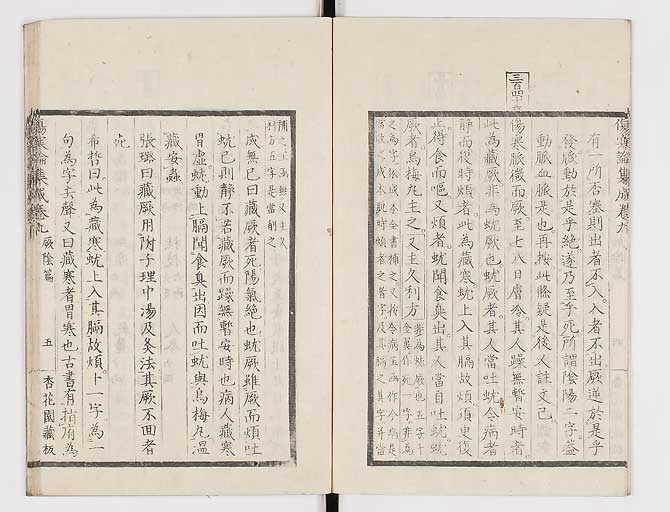 有一所否塞則出者不入。入者不出厥逆於是乎
發脈動於是乎絕。遂乃至乎死所謂陰陽二字蓋
動脈血脈是也。再按此條疑是後人註文已。
三百四十六
傷寒脈微而厥至七八日膚冷其人躁無暫安時者
此為藏厥非為蚘厥也蚘厥者。其人當吐蚘令病者
靜而復時煩者此為藏寒蚘上入其膈故煩須臾復
止得食而嘔又煩者。蚘聞食臭出其人當自吐蚘蚘
厥者烏梅丸主之。又主久利方
傷寒論集成卷九
厥陰篇
五
杏花園藏板
成無已曰藏厥者死陽氣絕也蚘厥雖厥而煩吐
蚘已則靜不若藏厥而躁無暫安時也病人藏寒
胃虛蚘動上膈聞食臭出因而吐蚘與烏梅丸溫
藏安蟲
張璐曰藏厥用附子理中湯及灸法其厥不回者
死
希哲曰此為藏寒蚘上入其膈故煩。十一字為一
句為字去聲又曰藏寒者胃寒也古書有指府為